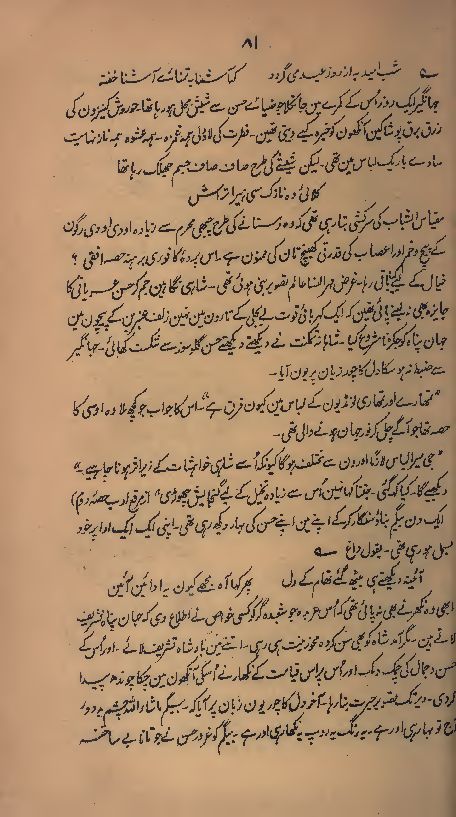 ۸۱
شب امید بہ از روز عیدی گردد کہ آشنا بہ تمنائے آشنا خفتہ
جہانگیر ایک روز اُس کے کمرے مین جا نکلا جو ضیائے حسن سے شیش محل ہو رہا تھا۔ خوروش کنیزون کی
زرق برق پوشاکین آنکھون کو خیرہ کیے دیتی تھین۔ فطرت کی لاڈلی ہمہ غمزہ۔ ہمہ عشوہ ہمہ ناز نہایت
سادے باریک لباس مین تھی۔ لیکن شیشے کی طرح صاف صاف جسم جھلک رہا تھا
کلائی وہ نازک سی ہیرا تراش
مقیاس الشباب کی سرکشی بتا رہی تھی کہ وہ دستانے کی طرح چھپی محرم سے زیادہ اودی اودی رگون
کے پیچ و خم اور اعصاب کی قدرتی کھینچ تان کی ممنون ہے۔ اس پردۂ کا نوری پر ہمہ حصہ افقی ؟
خیال کے لیے باقی رہا۔ غرض مہر النسا عالم تصویر بنی ہوئی تھی۔ شاہی نگاہین جم کر حسن عریانی کا
جائزہ بھی نہ لینے پائی تھین کہ ایک کہربائی قوت نے بجلی کے تارون مین نہین زلف عنبرین کے پیچون مین
جان پناہ کو جکڑنا شروع کیا۔ شاہانہ تمکنت نے دیکھتے دیکھتے حسن گلو سوز سے شکست کھائی۔ جہانگیر
سے ضبط نہ ہو سکا دل کا چور زبان پر یون آیا۔
"تمھارے اور تمھاری لونڈیون کے لباس مین کیون فرق ہے"۔ اس کا جواب جو کچھ ملا وہ اوسی کا
حصہ تھا جو آگے چل کر نور جہان ہونے والی تھی۔
"جی میرا لباس لازمًا اورون سے مختلف ہوگا کیونکہ اُسے شاہی خواہشات کے زیر اثر ہونا چاہیے۔"
دیکھیے گا۔ کیا کہہ گئی۔ جتنا کہا نہین اُس سے زیادہ تخیل کے لیے گنجایش چھوڑی" (مرقع ادب حصہ دوم)
ایک دن بیگم بناؤ سنگار کر کے اپنے مین اپنے حسن کی بہار دیکھ رہی تھی۔ اپنی ایک ایک ادا پر خود
بسمل ہو رہی تھی۔ بقول داغ
آئینہ دیکھتے ہی بیٹھ گئے تھام کے دل پھر کہا آہ مجھے کیون یہ ادائین آئین
ابھی وہ نکھرنے بھی نہ پائی تھی کہ اُس عربدہ جو شعبدہ گر کو کسی خواص نے اطلاع دی کہ جہان پناہ تشریف
لاتے ہین۔ مگر آمد شاہ کو بھی سن کر وہ محو زینت ہی رہی۔ اتنے مین بادشاہ تشریف لائے۔ اور اُس کے
حسن و جمال کی چمک دمک اور اُس پر اس قیامت کے نکھار نے اُسکی آنکھون مین چکا چوندھ پیدا
کر دی۔ دیر تک تصویر حیرت بنا رہا۔ آخر دل کا چور یون زبان پر آیا کہ۔ بیگم ماشاء اللہ چشم بد دور
آج تو بہار ہی اور ہے۔ یہ رنگ یہ روپ یہ نکھار ہی اور ہے۔ بیگم کو غرور حسن نے جو تانا بے ساختہ